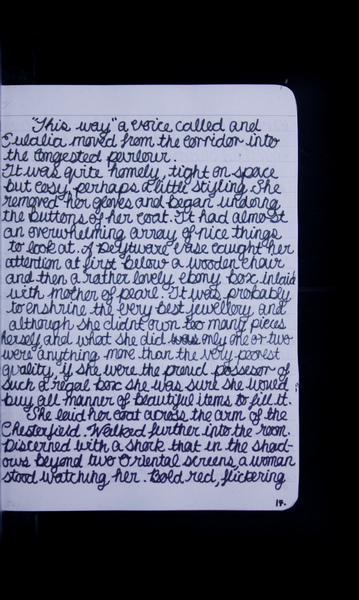 "This way" a voice called and
Eulalia moved from the corridor into
the congested parlour.
It was quite homely, tight on space
but cosy, perhaps a little styling. She
removed her gloves and began undoing
the buttons of her coat. It had almost
an overwhelming array of nice things
to look at. A Delftware vase caught her
attention at first below a wooden chair
and then a rather lovely ebony box inlaid
with mother of pearl. It was probably
to enshrine the very best jewellery and
although she didnt own too many pieces
herself and what she did was only one or two
were anything more than the very poorest
quality, if she were the proud possesor of
such a regal box she was sure she would
buy all manner of beautiful items to fill it.
She laid her coat across the arm of the
Chesterfield. Walked further into the room.
Discerned with a shock that in the shad-
ows beyond two Oriental screens a woman
stood watching her. Bold red, flickering
17.